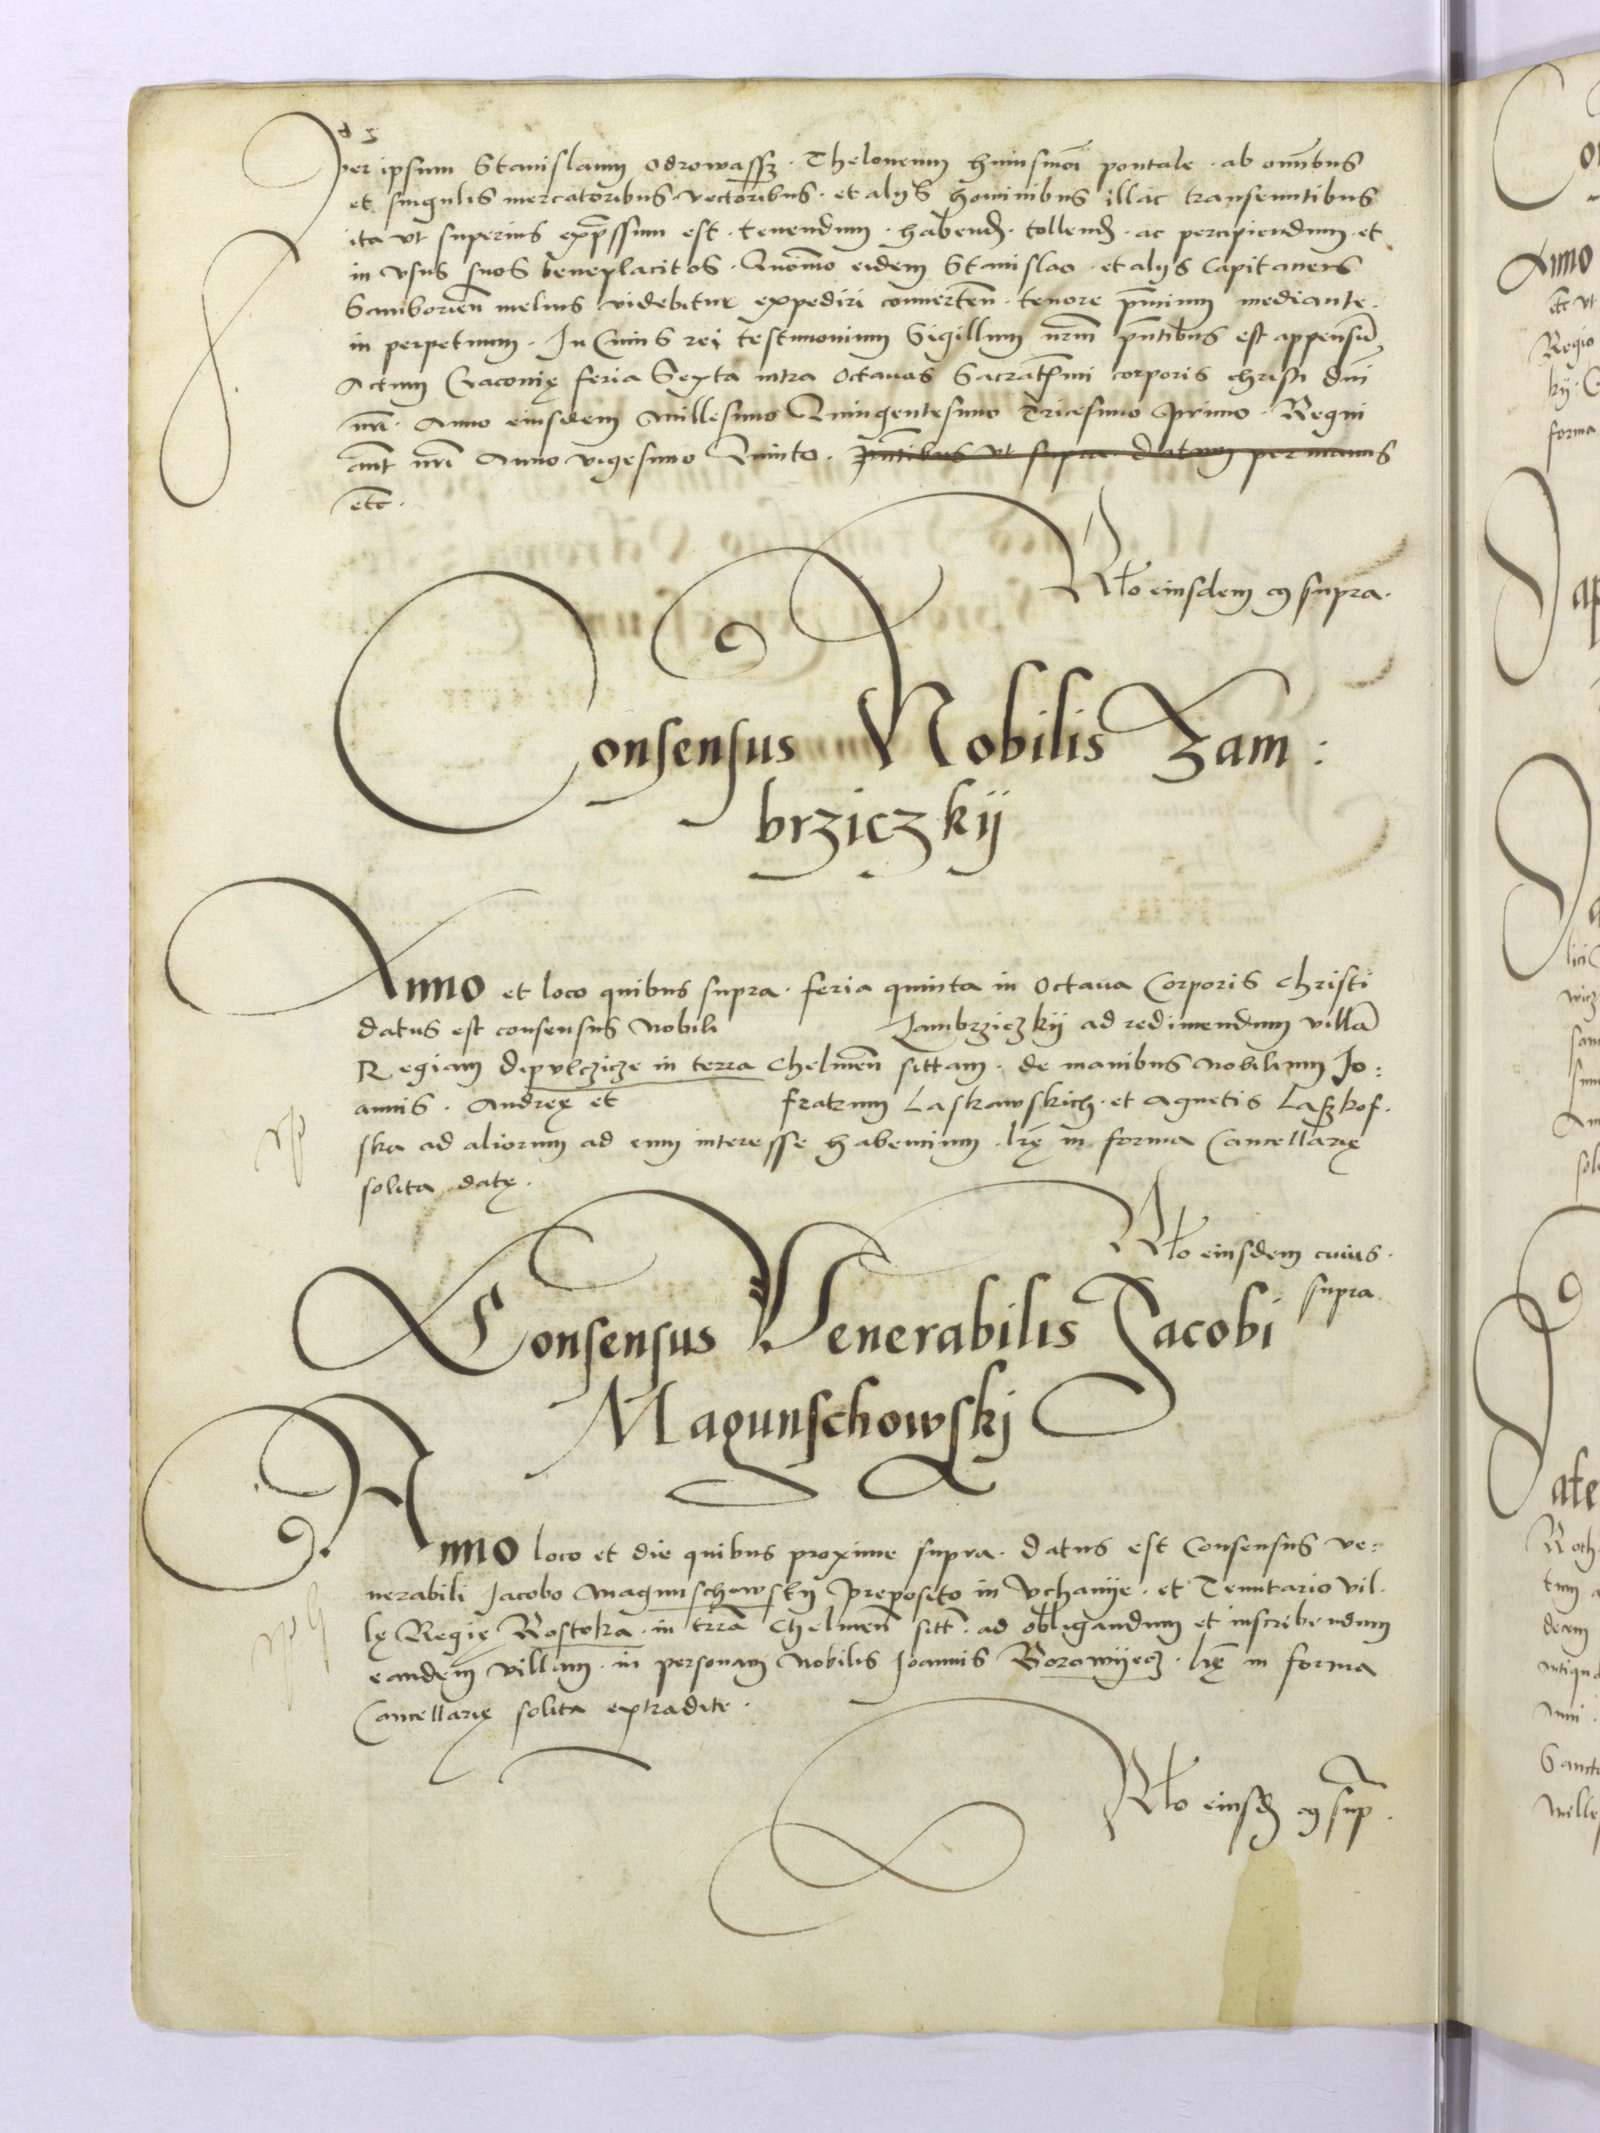 per ipsum Stanislaum Odrowassz · Theloneum huiusmoi pontale · ab omibus
et singulis mercatoribus · vectoribus · et alijs hominibus illac transeuntibus
ita vt superius expssum est · tenendum · habend · tollend · ac percipiendum · et
in vsus suos beneplacitos · Quomo eidem Stanislao · et alijs Capitaneis
Samborien melius videbitur expediri conuerten · tenore pntium mediante ·
in perpetuum · In Cuius rei testimonium Sigillum nrm pntibus est appensu
Actum Cracouię feria Sexta intra Octauas Sacratsmi corporis christi dni
nri · Anno eiusdem Millesimo Quingentesimo Tricesimo Primo · Regni
aut nri Anno vigesimo Quinto · pntibus vt supra datum per manus
etc ·
Rlo eiusdem cs supra ·
Consensus Nobilis Zam :
brziczkij
Anno et loco quibus supra · feria quinta in Octaua Corporis Christi
datus est consensus Nobili Zambrziczkij ad redimendum villa
Regiam Depulczicze in terra Chelmen sittam · de manibus Nobilium Jo :
annis · Andreę et fratrum Laskawskich · et Agnetis Laszkof ·
ska ad aliorum ad eum interesse habentium · lrę in forma Cancellarię
solita datę ·
Rlo eiusdem cuius ·
supra
Consensus Venerabilis Jacobi
Magunschowskj
Anno loco et die quibus proxime supra · datus est Consensus ve=
nerabili Jacobo Magunschowskij Preposito in Vchanije · et Tenutario vil ·
lę Regię Rostoka · in trra Chelmen sitt · ad obligandum et inscribendum
eandem villam · in personam Nobilis Joannis Borowijecz · lrę in forma
Cancellarię solita extradite ·
Rlo eiusd cs sup ·